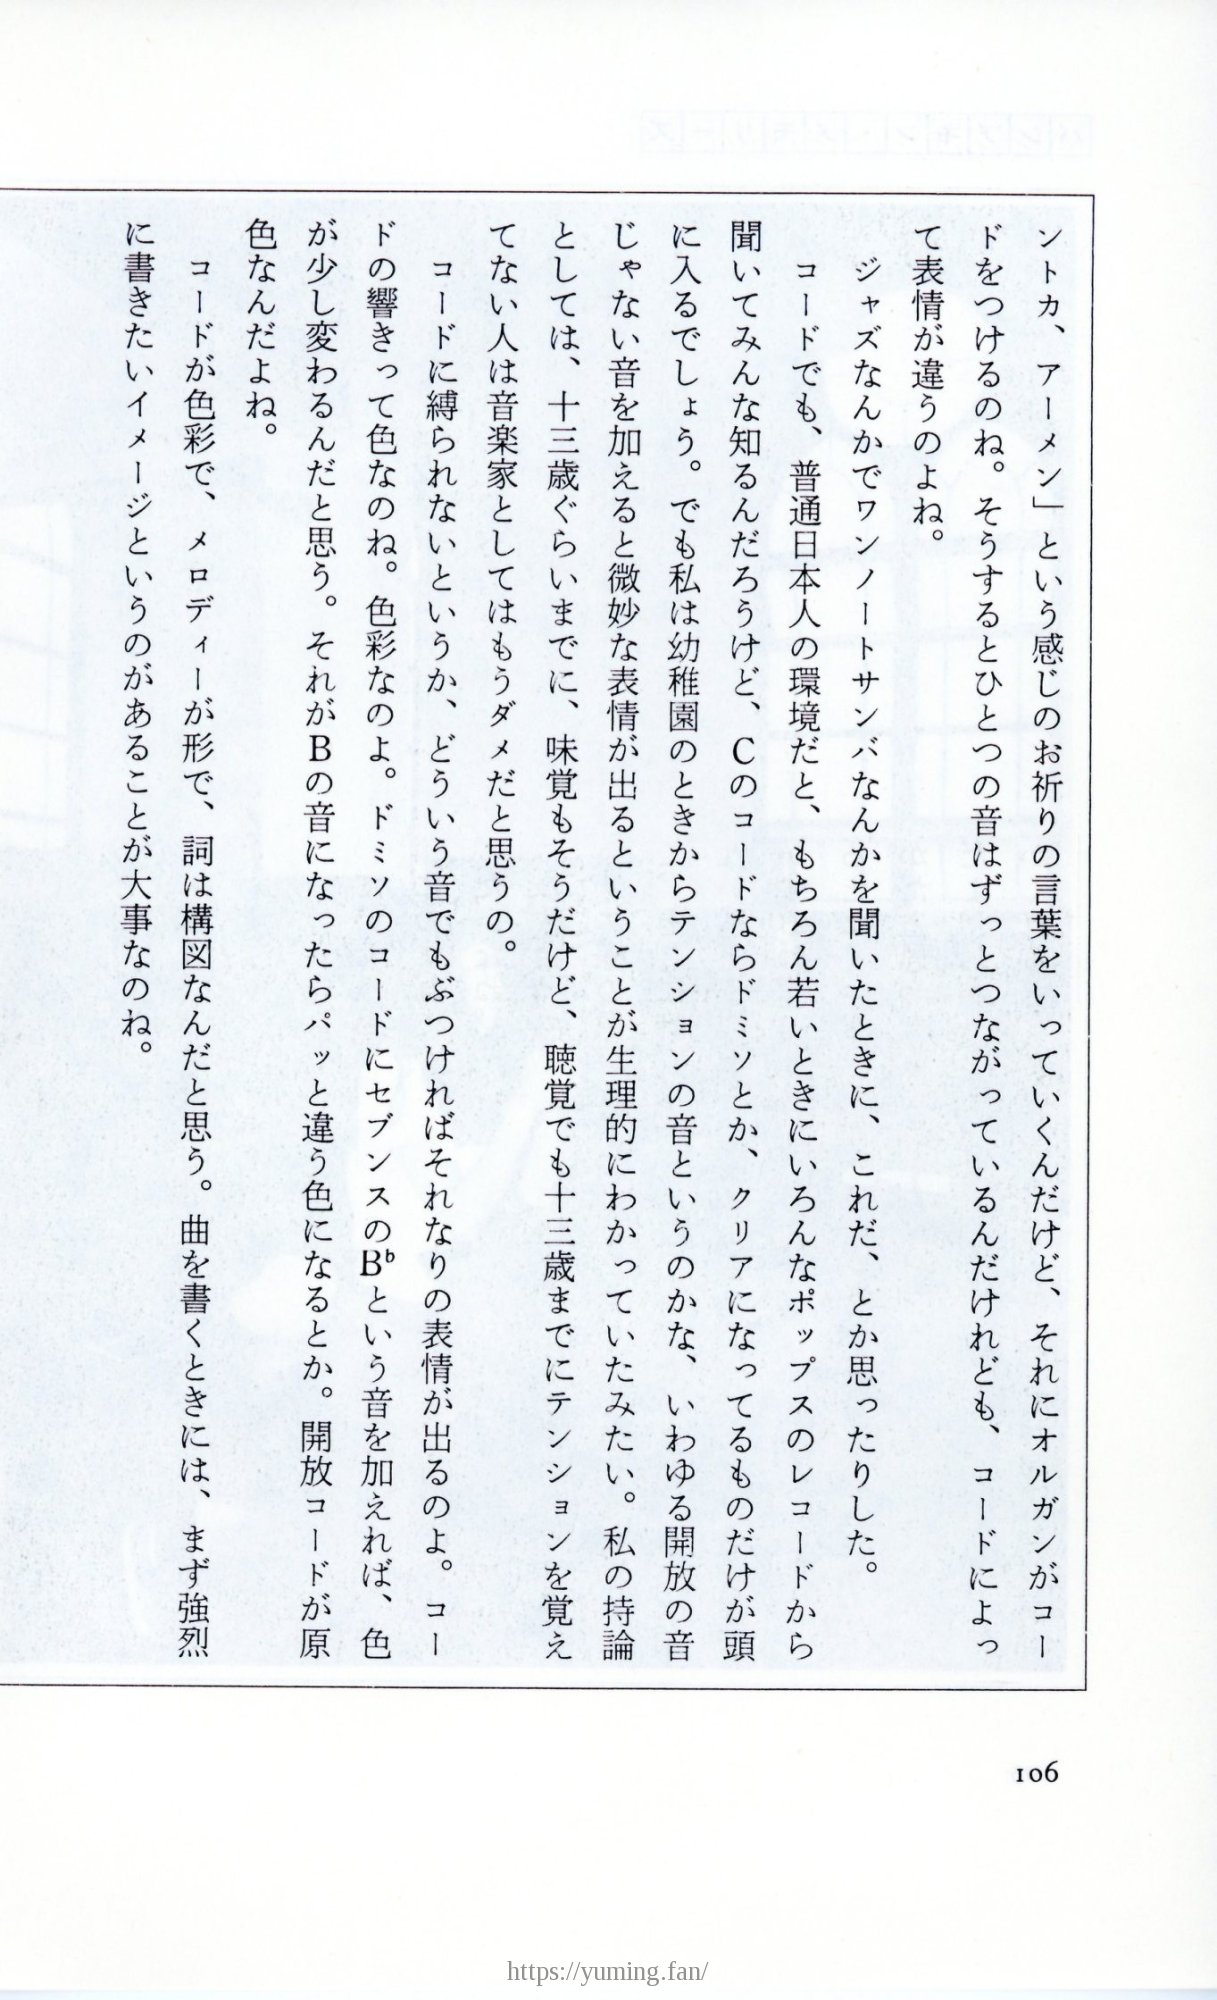 ントカ、アーメン」という感じのお祈りの言葉をいっていくんだけど、それにオルガンがコー
ドをつけるのね。そうするとひとつの音はずっとつながっているんだけれども、コードによっ
て表情が違うのよね。
ジャズなんかでワンノートサンバなんかを聞いたときに、これだ、とか思ったりした。
コードでも、普通日本人の環境だと、もちろん若いときにいろんなポップスのレコードから
聞いてみんな知るんだろうけど、Cのコードならドミソとか、クリアになってるものだけが頭
に入るでしょう。でも私は幼稚園のときからテンションの音というのかな、いわゆる開放の音
じゃない音を加えると微妙な表情が出るということが生理的にわかっていたみたい。私の持論
としては、十三歳ぐらいまでに、味覚もそうだけど、聴覚でも十三歳までにテンションを覚え
てない人は音楽家としてはもうダメだと思うの。
コードに縛られないというか、どういう音でもぶつければそれなりの表情が出るのよ。コー
ドの響きって色なのね。色彩なのよ。ドミソのコードにセブンスのB♭という音を加えれば、色
が少し変わるんだと思う。それがBの音になったらパッと違う色になるとか。開放コードが原
色なんだよね。
コードが色彩で、メロディーが形で、詞は構図なんだと思う。曲を書くときには、まず強烈
に書きたいイメージというのがあることが大事なのね。
106
https://yuming.fan/